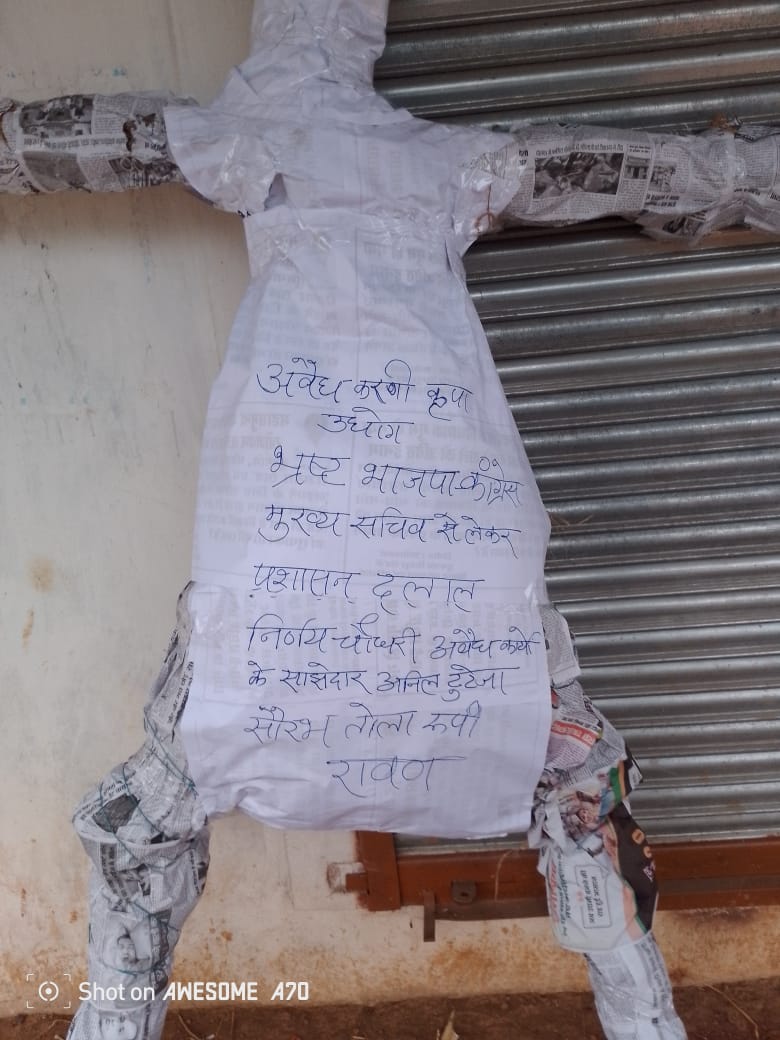 अवैध करणी कृपा
उद्योग
भ्रष्ट भाजपा कॉंग्रेस
मुख्य सचिव से लेकर
प्रशासन दलाल
निर्णय चौधरी अवैध कार्यो
के साझेदार अनिल टुटेजा
सौरभ तोला रूपी
रावण
Shot on AWESOME A70